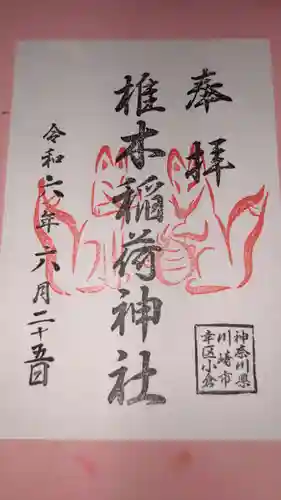 奉拝
椎木稲荷神社
令和六年六月二十五日
神奈川県
川崎市
幸区小倉